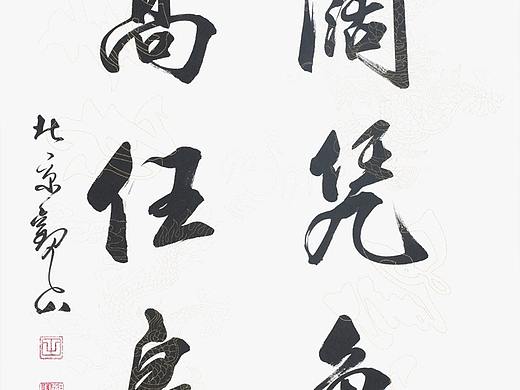 阔凭鱼
高任鸟
北京